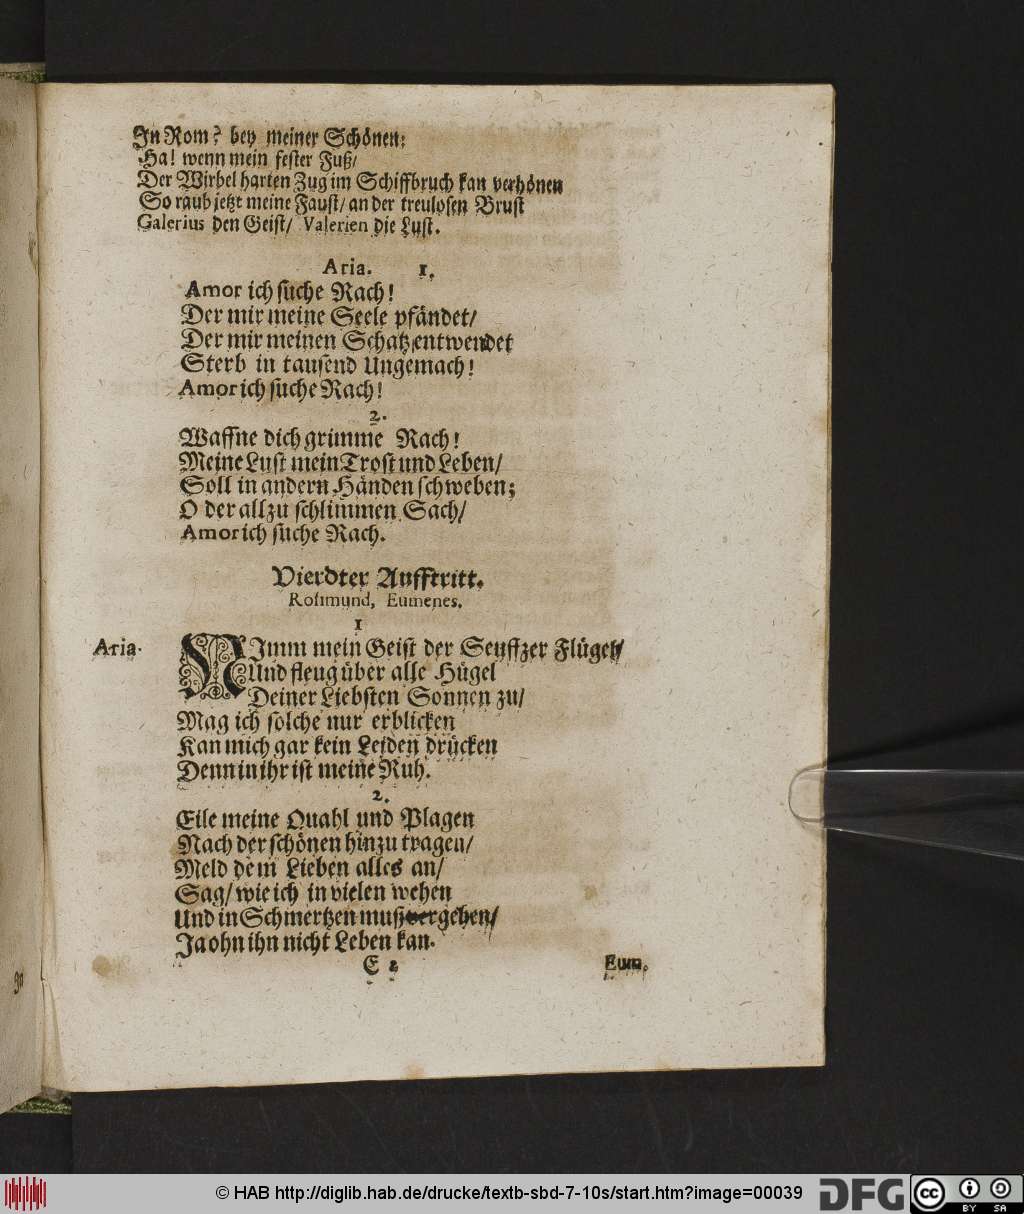 In Rom? bey meiner Schönen;
Ha! wenn mein fester Fuß/
Der Wirbel harten Zug im Schiffbruch kan verhönen
So raub jetzt meine Faust/ an der treulosen Brust
Galerius den Geist/ Valerien die Lust.
Aria. 1.
Amor ich suche Rach!
Der mir meine Seele pfändet/
Der mir meinen Schatz entwendet
Sterb in tausend Ungemach!
Amor ich suche Rach!
2.
Waffne dich grimme Rach!
Meine Lust mein Trost und Leben/
Soll in andern Händen schweben;
O der allzu schlimmen Sach/
Amor ich suche Rach.
Vierdter Aufftritt.
Rosimund, Eumenes.
1
Aria. NImm mein Geist der Seuffzer Flügel/
Und fleug über alle Hügel
Deiner Liebsten Sonnen zu/
Mag ich solche nur erblicken
Kan mich gar kein Leiden drücken
Denn in ihr ist meine Ruh.
2.
Eile meine Quahl und Plagen
Nach der schönen hinzu tragen/
Meld dem Lieben alles an/
Sag/ wie ich in vielen wehen
Und in Schmertzen muß vergehen/
Ja ohn ihn nicht Leben kan.
E 2 Eum.
© HAB http://diglib.hab.de/drucke/textb-sbd-7-10s/start.htm?image=00039
DFG
cc
BY SA